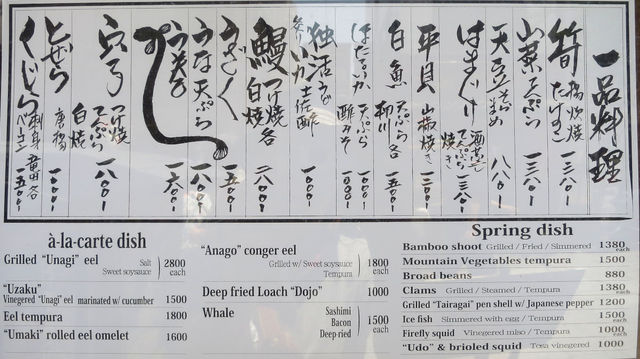 一品料理
筍 たけのこ 揚 炊 焼 一三八〇
山菜天ぷら
天豆 そらまめ 八八〇
はまぐり 酒蒸し 焼き てんぷら 一三八〇
平貝 山椒焼き 一二〇〇
白魚 天ぷら 柳川 各 一五〇〇
ほたるいか 天ぷら 酢みそ 一〇〇〇
独活うど いか 土佐酢 一〇〇〇
鰻 つけ焼 白焼 各 二八〇〇
うざく 一五〇〇
うな天ぷら 一八〇〇
うまき 一六〇〇
穴子 つけ焼 てんぷら 白焼 一八〇〇
どぜう 唐揚 一〇〇〇
くじら 刺身 竜田 ベーコン 各 一五〇〇
à-la-carte dish
Grilled "Unagi" eel Salt Sweet soysauce 2800 each
"Uzaku"
Vinegered "Unagi" eel marinated w/ cucumber 1500
Eel tempura 1800
"Umaki" rolled eel omelet 1600
"Anago" conger eel
Grilled w/ Sweet soysauce
Tempura 1800 each
Deep fried Loach "Dojo" 1000
Whale Sashimi
Bacon
Deep-ried 1500 each
Spring dish
Bamboo shoot Grilled / Fried / Simmered 1380 each
Mountain Vegetables tempura 1500
Broad beans 880
Clams Grilled / Steamed / Tempura 1380 each
Grilled "Tairagai" pen shell w/ Japanese pepper 1200
Ice fish Simmered with egg / Tempura 1500 each
Firefly squid Vinegered miso / Tempura 1000 each
"Udo" & brioled squid Tosa vinegered 1000